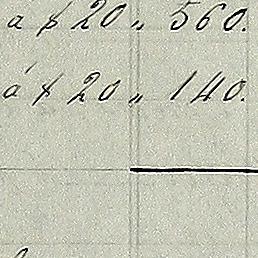 á $ 20 „ 560.
á $ 20 „ 140.